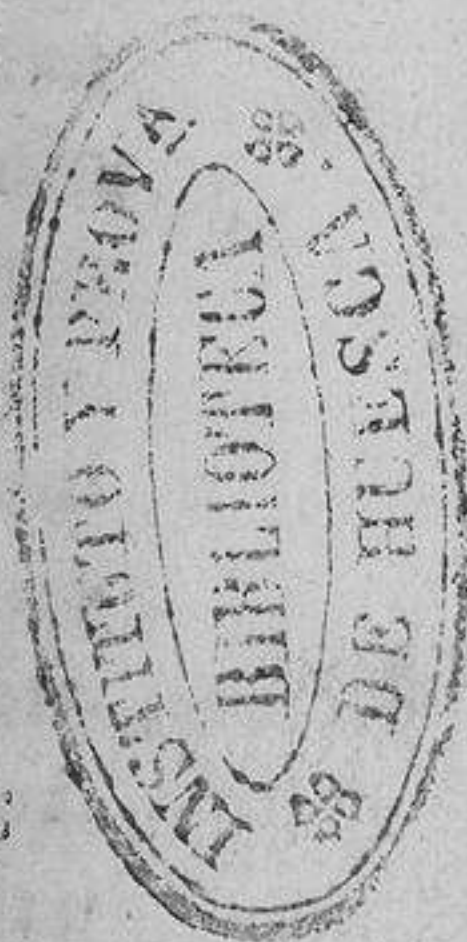 INSTITUTO Y PROVA.
BIBLIOTECA
DE HUESCA